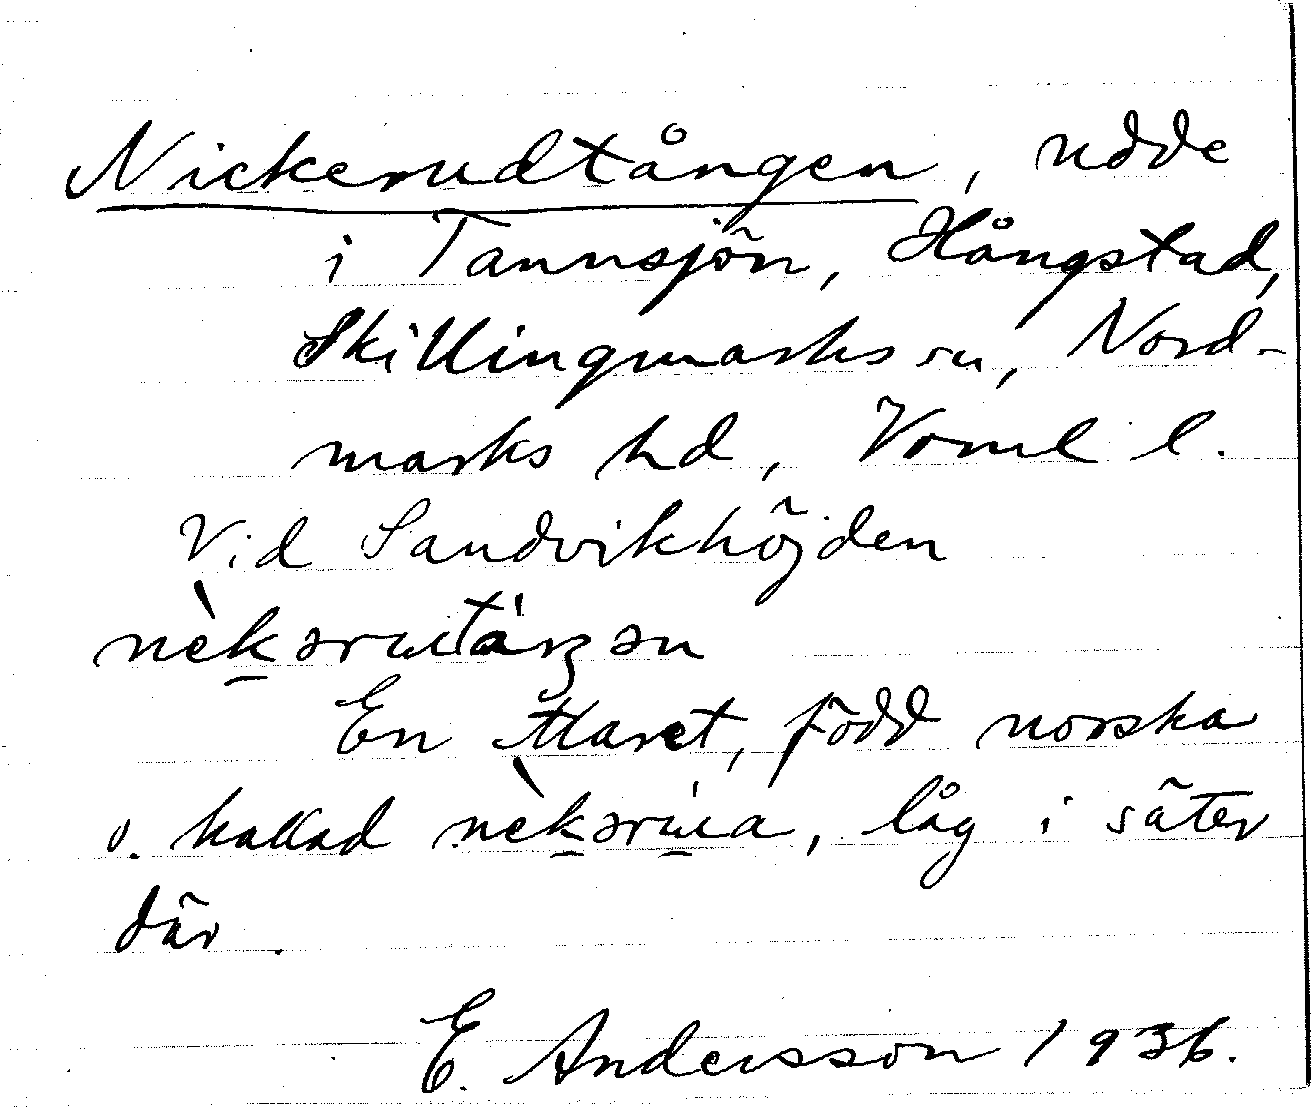 Nickerudtången, udde
i Tannsjön, Hångstad,
Skillingmarks sn, Nord-
marks hd, Vrml l.
Vid Sandvikhöjden
nèkərutáŋən
En Maret, född norska
o. kallad nèkərúa, låg i säter
där.
E. Andersson 1936.